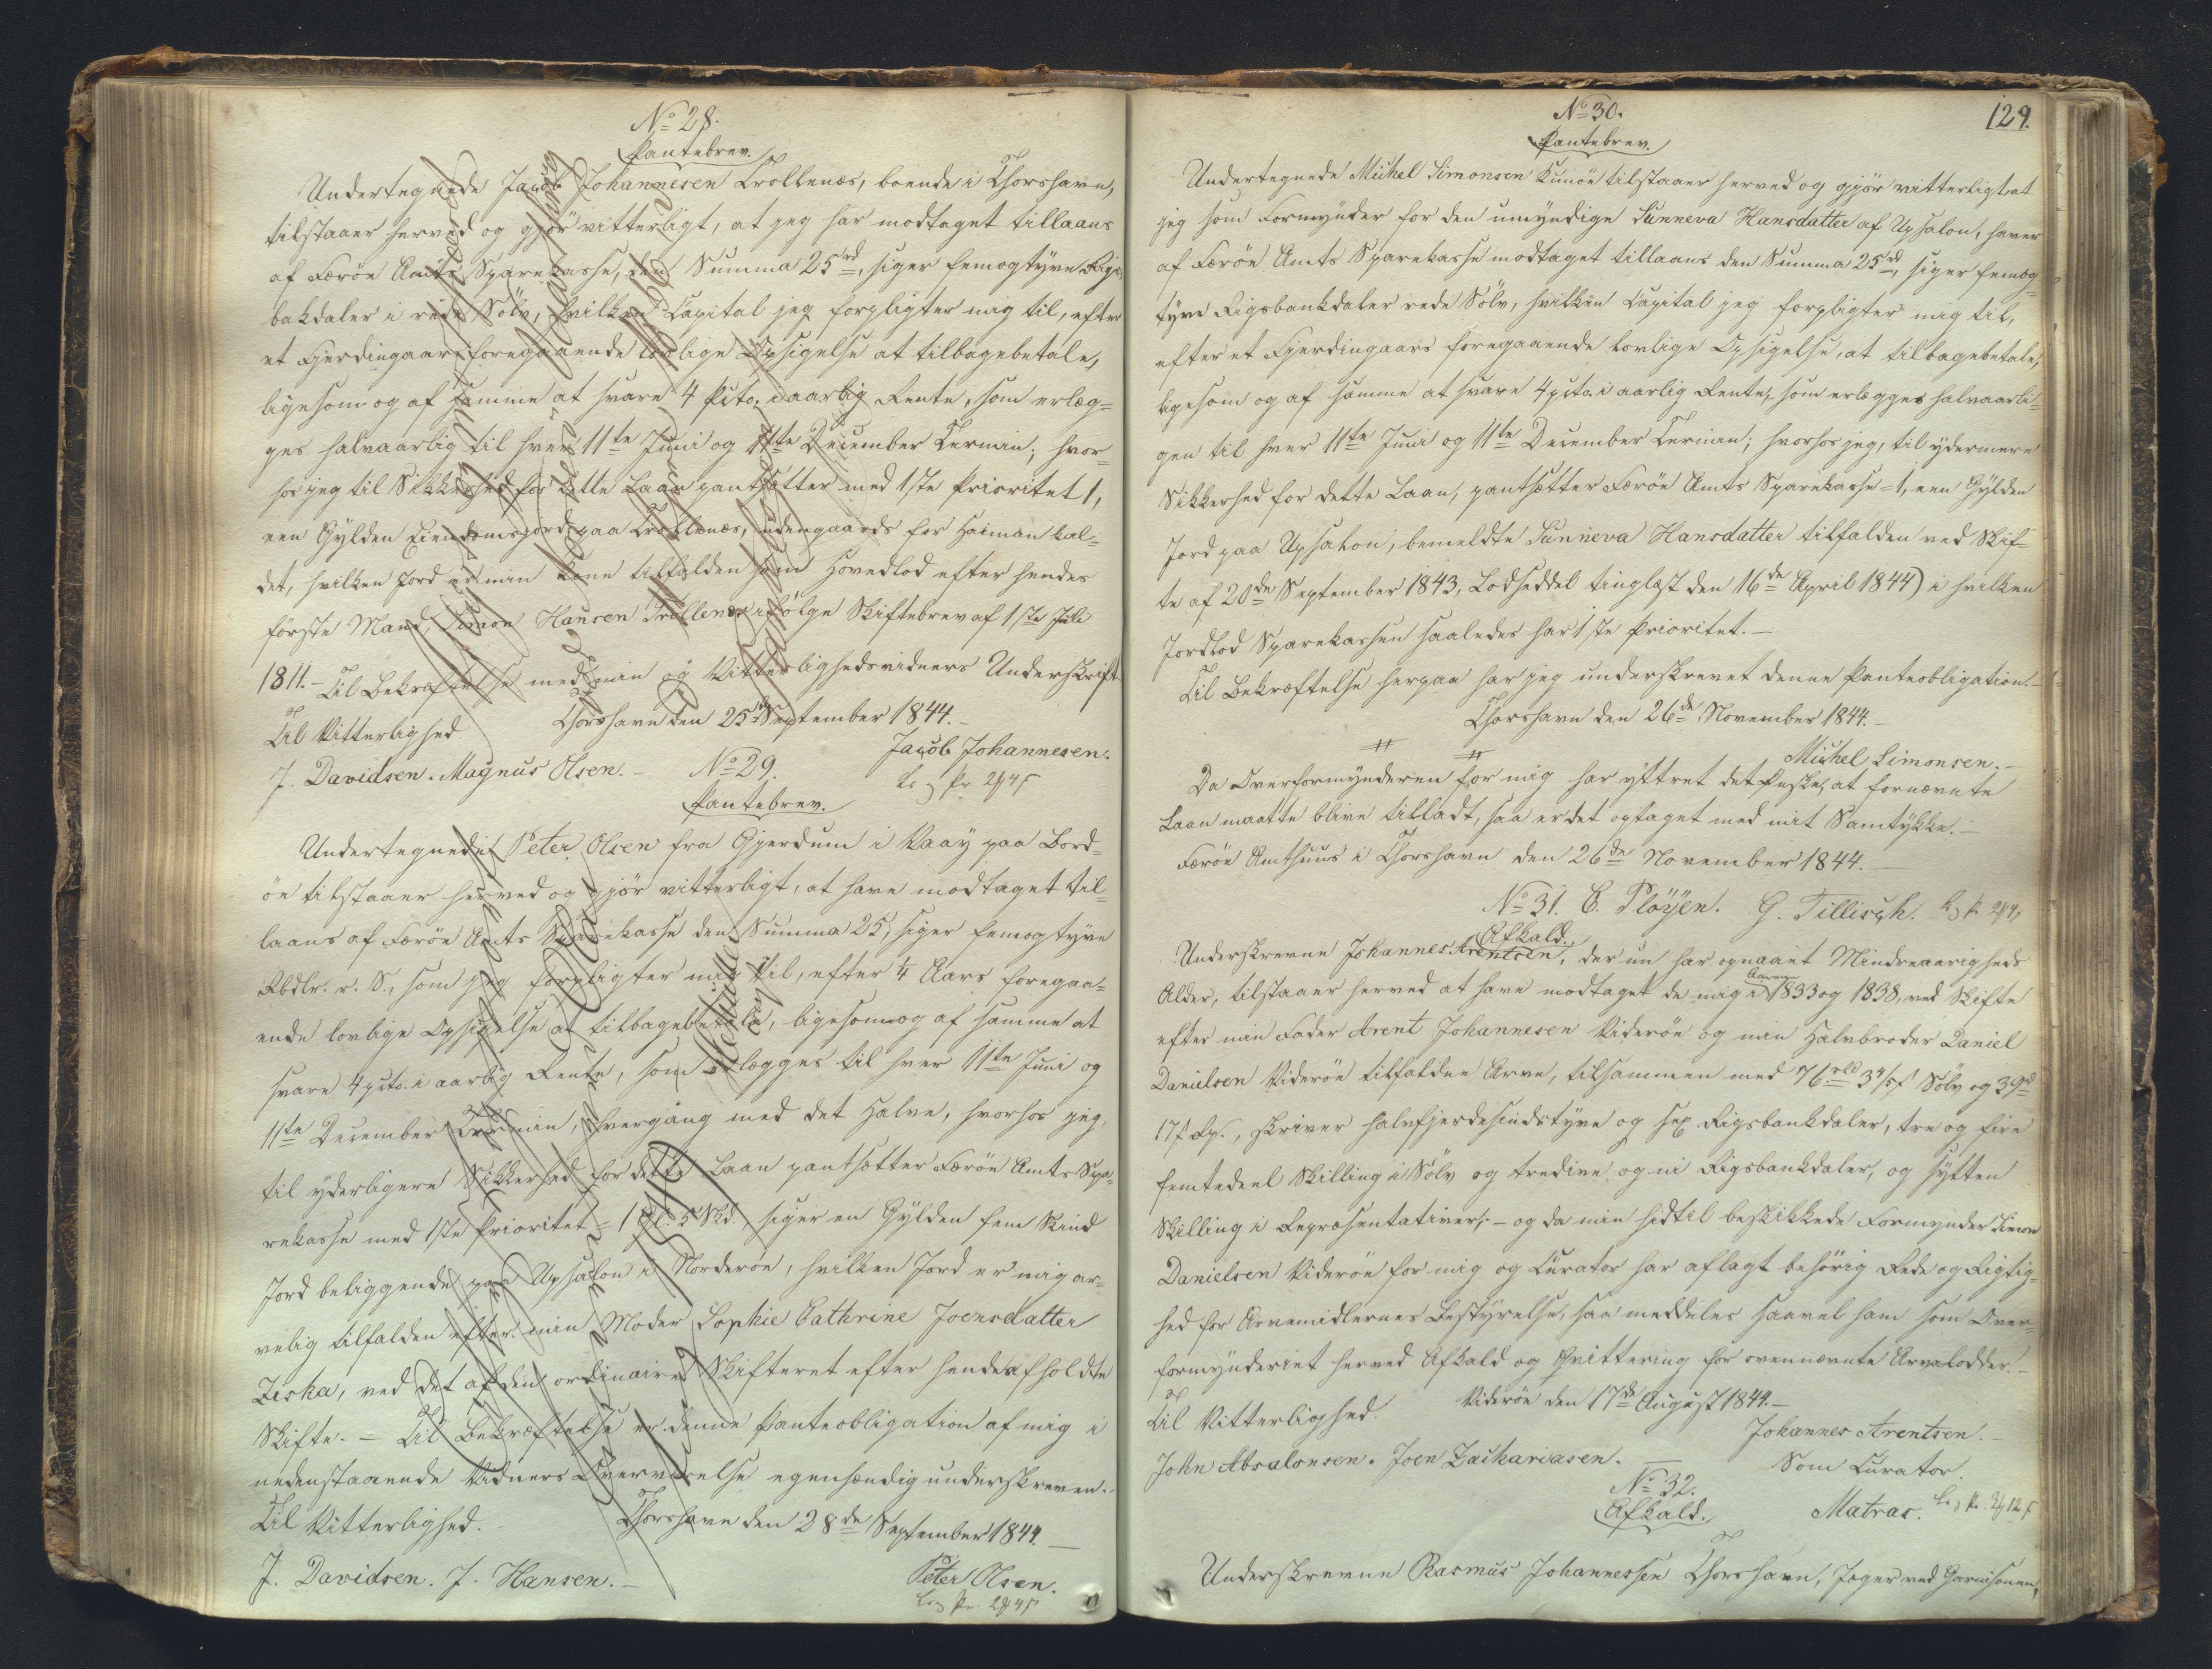 No 28.
Pantebrev.
Undertegnede Jacob Johannesen Trollenæs, boende i Thorshavn,
tilstaaer herved og gjør vitterligt, at jeg har modtaget tillaans
af Færöe Amts Sparekasse, den Summa 25 rd, siger femogtyve Rigs-
bakdaler i rede Sölv, hvilken Capital jeg forpligter mig til, efter
et Fjerdingaars foregaaende lovlige Opsigelse at tilbagebetale,
ligesom og af samme at svare 4 Pcto. i aarlig Rente, som erlæg=
ges halvaarlig til hver 11te Juni og 11te December Termin; hvor=
hos jeg til Sikkerhed for dette Laan pantsætter med 1ste Prioritet 1,
een Gylden Eiendomsjord paa Trollenæs, udengaards for Haiman kal=
det, hvilken Jord er min Kone tilfalden som Hovedlod efter hendes
förste Mand, Simon Hansen Trollenæs ifölge Skiftebrev af 1ste Juli
1811.- Til Bekræftelse med min og Vitterlighedsvidners Underskrift.
Thorshavn den 25de September 1844.-
Til Vitterlighed
Jacob Johannesen.
J. Davidsen. Magnus Olsen.-
No 29.
Pantebrev.
Undertegnede Peter Olsen fra Gjerdum i Vaay paa Bord=
öe tilstaaer herved og gjör vitterligt, at have modtaget til=
laans af Færöe Amts Sparekasse den Summa 25, siger femogtyve
Rbdlr. r. S., som jeg forpligter mig til, efter 1/4 Aars foregaa=
ende lovlige Opsigelse at tilbagebetale, ligesom og af samme at
svare 4 pcto. i aarlig Rente, som erlægges til hver 11te Juni og
11te December Termin, hvergang med det Halve, hvorhos jeg,
til yderligere Sikkerhed for dette Laan pantsætter Færöe Amts Spa=
rekasse med 1ste Prioritet = 1 Gl. 5 Skd. siger en Gylden fem Skind
Jord beliggende paa Upsalon i Norderöe, hvilken Jord er mig ar=
velig tilfalden efter min Moder Sophie Cathrine Joensdatter
Ziska, ved det af den ordinaire Skifteret efter hende afholdte
Skifte. - Til Bekræftelse er denne Panteobligation af mig i
nedenstaaende Vidners Overværelse egenhændig underskreven.-
Til Vitterlighed.
Thorshavn den 28de September 1844.-
J. Davidsen. J. Hansen.-
Peter Olsen.
129.
No 30.
Pantebrev.
Undertegnede Michel Simonsen Kunöe tilstaaer herved og gjör vitterligt, at
jeg som Formynder for den umyndige Sunneva Hansdatter af Upsalon, haver
af Færöe Amts Sparekasse modtaget tillaans den Summa 25 rd, siger femog=
tyve Rigsbankdaler rede Sölv, hvilken Capital jeg forpligter mig til,
efter et Fjerdingaars foregaaende lovlige Opsigelse, at tilbagebetale,
ligesom og af samme at svare 4 pcto. i aarlig Rente, som erlægges halvaarli=
gen til hver 11te Juni og 11te December Termin; hvorhos jeg, til ydermere
Sikkerhed for dette Laan, pantsætter Færöe Amts Sparekasse = 1, een Gylden
Jord paa Upsalon, bemeldte Sunneva Hansdatter tilfalden ved Skif=
te af 20de September 1843, Lodseddel tinglæst den 16de April 1844) i hvilken
Jordlod Sparekassen saaledes har 1ste Prioritet.-
Til Bekræftelse herpaa har jeg underskrevet denne Panteobligation.-
Thorshavn den 26de November 1844.-
Michel Simonsen.-
Da Overformynderen for mig har yttret det Ønske, at fornævnte
Laan maatte blive tilladt, saa er det optaget med mit Samtykke.-
Færöe Amthuus i Thorshavn den 26de November 1844.-
No 31. C. Plöyen. G. Tillisch.
Afkald.
Underskrevne Johannes Arentsen, der nu har opnaaet Mindreaarigheds
Alder, tilstaaer herved at have modtaget de mig i Aarene 1833 og 1838, ved Skifte
efter min Fader Arent Johannesen Videröe og min Halvbroder Daniel
Danielsen Videröe tilfaldne Arve, tilsammen med 76 rbd 3 4/5 s Sölv og 39 rd
17 s Rp., skriver halvfjerdesindstyve og sex Rigsbankdaler, tre og fire
femtedeel Skilling i Sölv og tredive og ni Rigsbankdaler, og sytten
Skilling i Repræsentativer; - og da min hidtil beskikkede Formynder Simon
Danielsen Videröe for mig og Curator har aflagt behörig Rede og Rigtig=
hed for Arvemidlernes Bestyrelse, saa meddeles saavel ham som Over=
formynderiet herved Afkald og Qvittering for ovennævnte Arvelodder.-
Videröe den 17de August 1844.-
Til Vitterlighed.
Johannes Arentsen.-
John Absalonsen. Joen Zachariasen.-
Som Curator.
Matras.
No 32.
Afkald.
Underskrevne Rasmus Johannessen Thorshavn, Jæger ved Garnisonen,